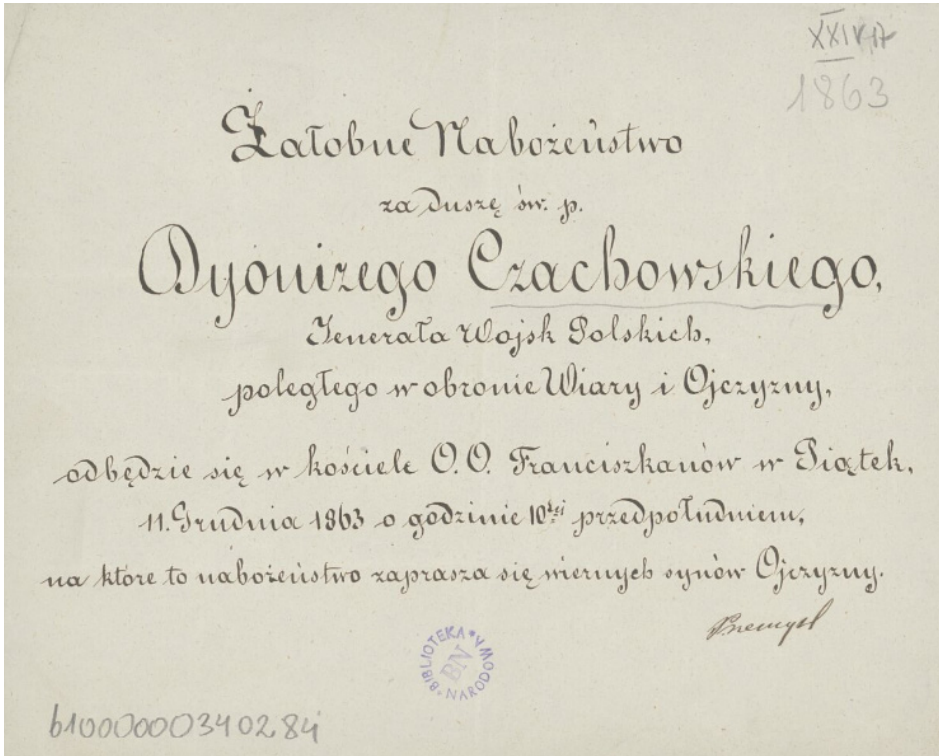 XXIV.17
1863
Załobne Nabożeństwo
za duszę św. p.
Dyonizego Czachowskiego,
Jenerała Wojsk Polskich,
poległego w obronie Wiary i Ojczyzny,
odbędzie się w kościele O.O. Franciszkanów w Piątek,
11. Grudnia 1863 o godzinie 10téj przedpołudniem,
na które to nabożeństwo zaprasza się wiernych synów Ojczyzny.
Przemysl
BIBLIOTEKA NARODOWA
BN
b10000003402.84